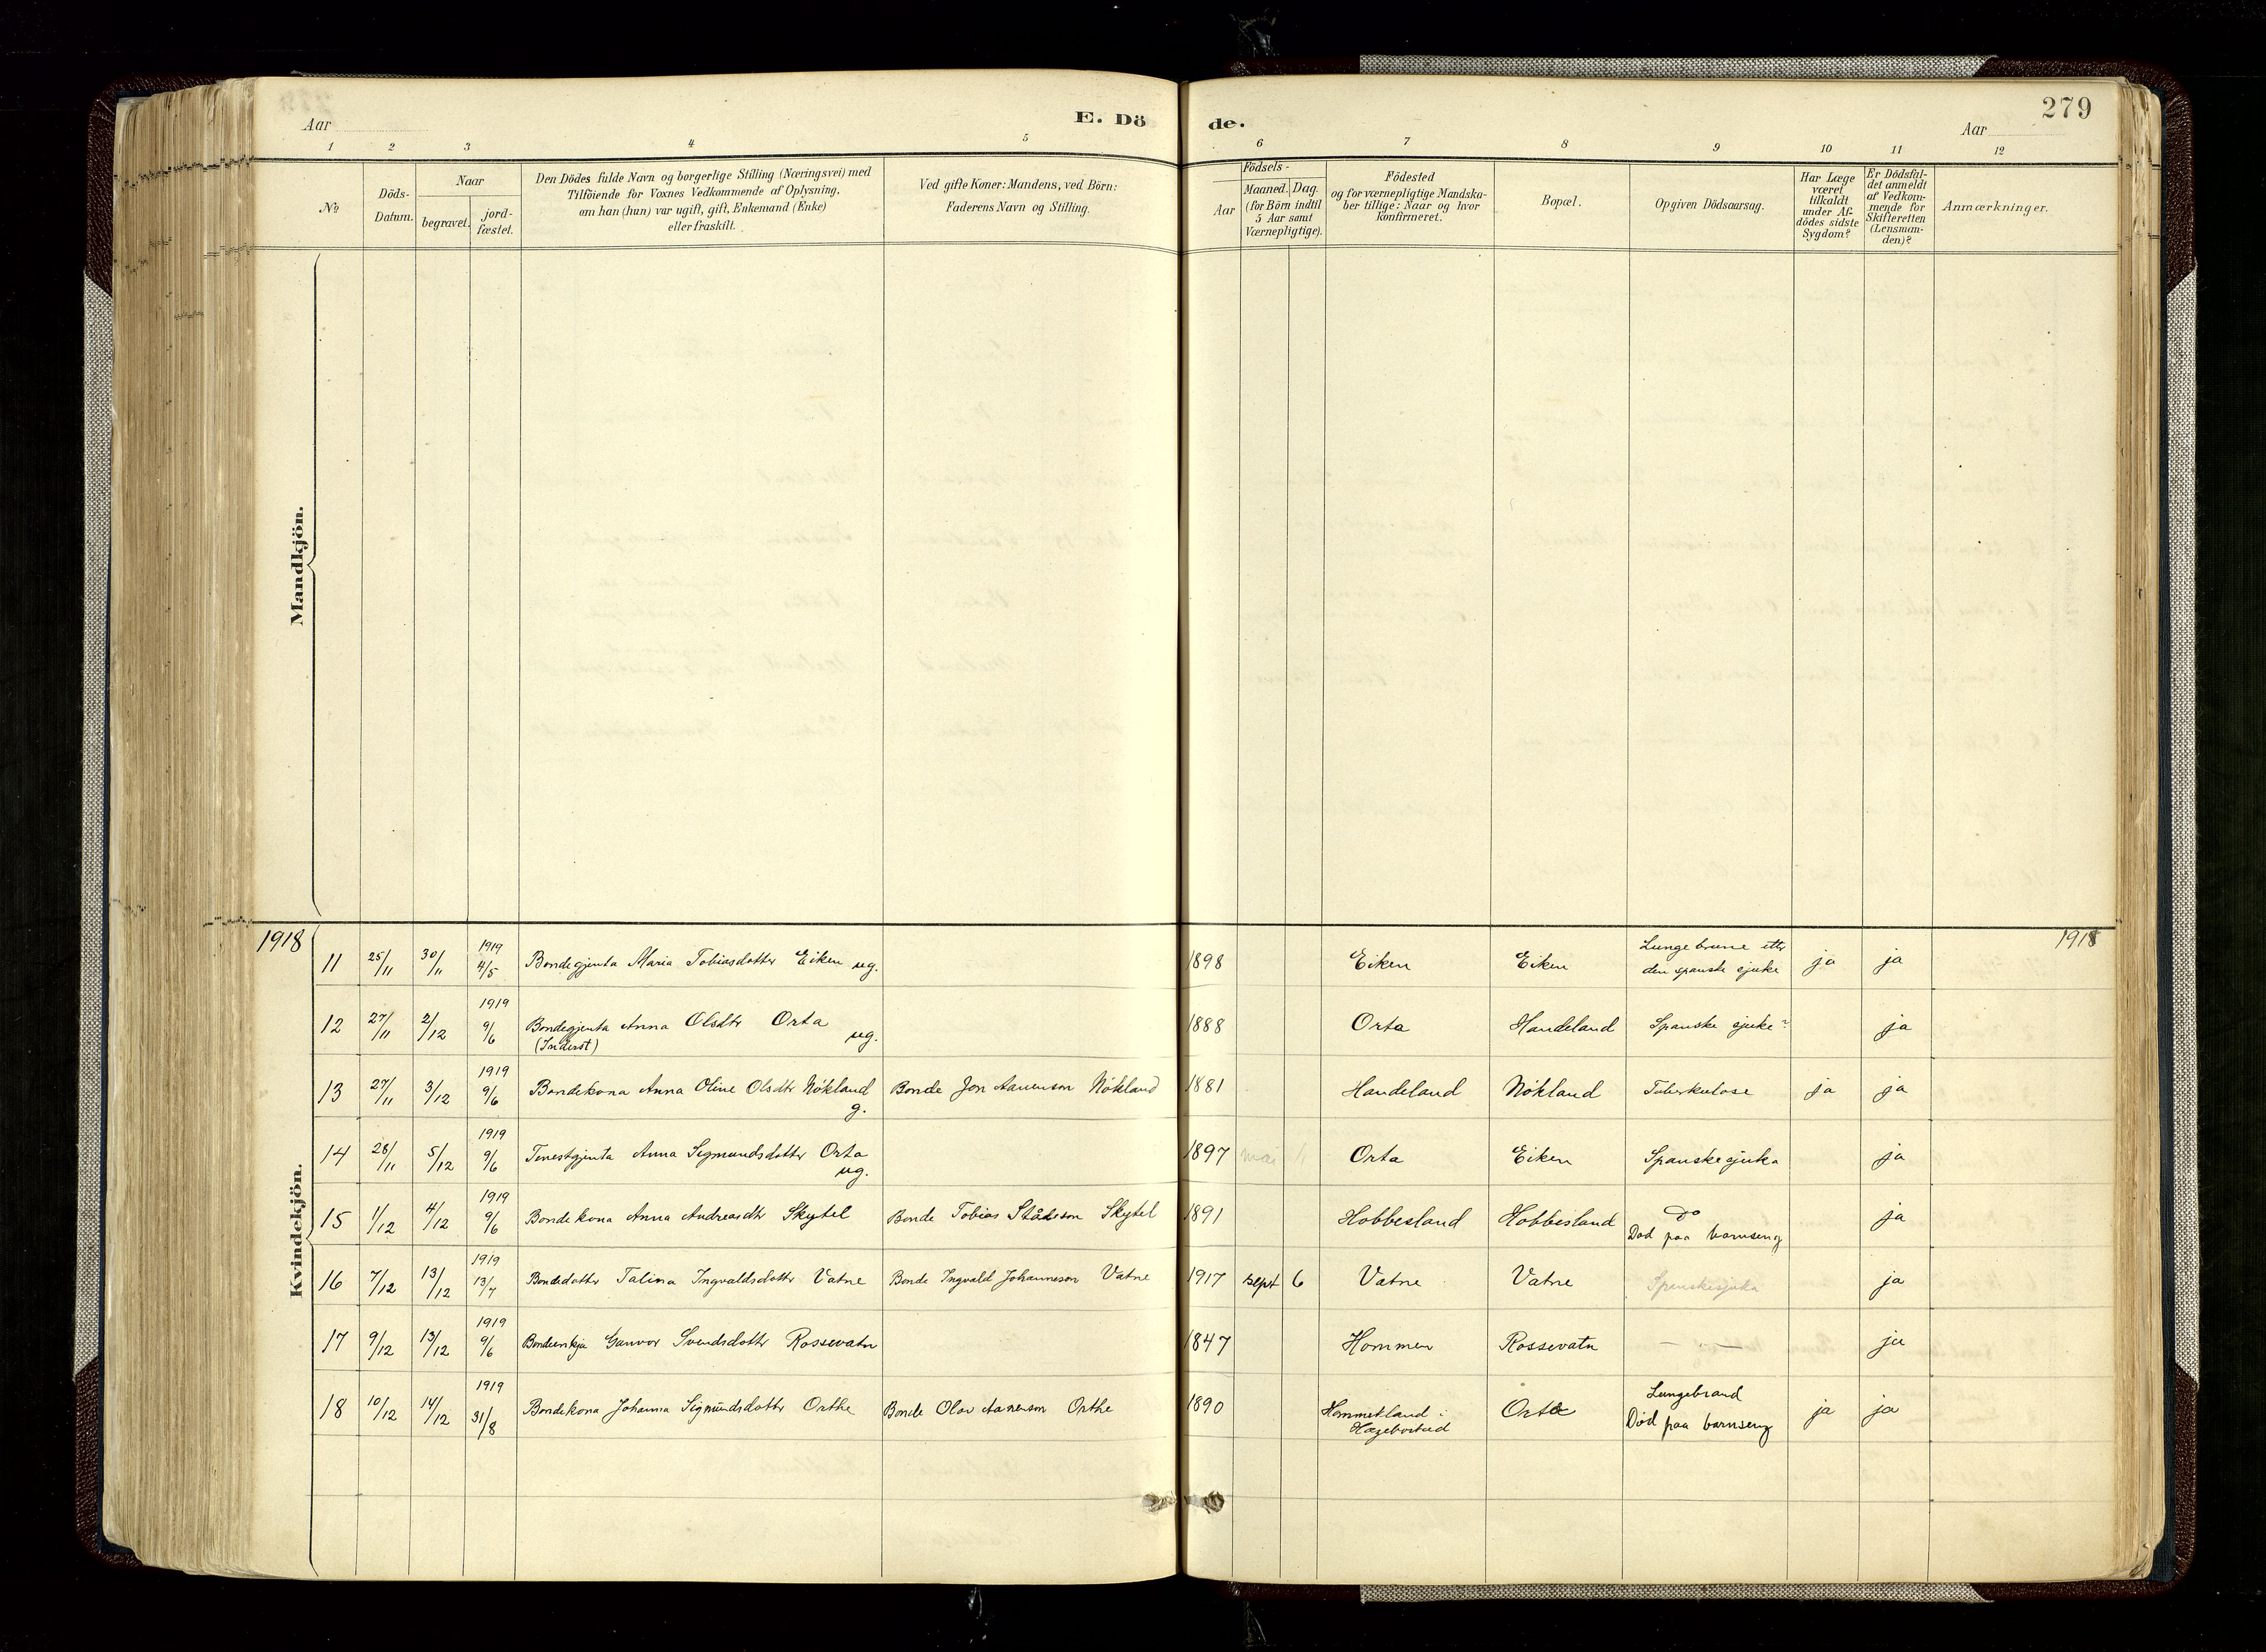 279
Aar
E. Dö
de.
Aar
1 2 3 4 5 6 7 8 9 10 11 12
№
Döds-
Datum.
Naar
begravet.
jord-
fæstet.
Den Dödes fulde Navn og borgerlige Stilling (Næringsvei) med
Tilföiende for Voxnes Vedkommende af Oplysning,
om han (hun) var ugift, gift, Enkemand (Enke)
eller fraskilt.
Ved gifte Koner: Mandens, ved Börn:
Faderens Navn og Stilling.
Födsels-
Aar
Maaned. Dag.
(for Börn indtil
5 Aar samt
Værnepligtige).
Födested
og for værnepligtige Mandska-
ber tillige: Naar og hvor
konfirmeret.
Bopæl.
Opgiven Dödsaarsag.
Har Læge
været
tilkaldt
under Af-
dödes sidste
Sygdom?
Er Dödsfal-
det anmeldt
af Vedkom-
mende for
Skifteretten
(Lensman-
den)?
Anmærkninger.
Mandkjön.
Kvindekjön.
1918
1918
11 25/11 30/11 1919 4/5 Bondegjenta Maria Tobiasdotter Eiken ug. 1898 Eiken Eiken Lungebrune etter den spanske sjuke ja ja
12 27/11 2/12 1919 9/6 Bondegjenta Anna Olsdtr Orta ug. (Inderst) 1888 Orta Handeland Spanske sjuke? ja
13 27/11 3/12 1919 9/6 Bondekona Anna Oline Olsdtr Nökland g. Bonde Jon Aanenson Nökland 1881 Handeland Nökland Tuberkulose ja ja
14 28/11 5/12 1919 9/6 Tenestgjenta Anna Sigmundsdotter Orta ug. 1897 mai 11 Orta Eiken Spanskesjuka ja
15 1/12 4/12 1919 9/6 Bondekona Anna Andreasdtr Skytel Bonde Tobias Ståleson Skytel 1891 Hobbesland Hobbesland do Död paa barnseng ja
16 7/12 13/12 1919 13/7 Bondedotter Talina Ingvaldsdottr Vatne Bonde Ingvald Johanneson Vatne 1917 sept 6 Vatne Vatne Spanskesjuka ja
17 9/12 13/12 1919 9/6 Bondeenkja Gunvor Svendsdottr Rossevatn 1847 Hommen Rossevatn — " — ja
18 10/12 14/12 1919 31/8 Bondekona Johanna Sigmundsdottr Orthe Bonde Olav Aanenson Orthe 1890 Hommetland i Hægebostad Orta Lungebrand Död paa barnseng ja ja